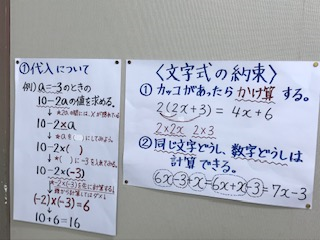 ①代入について
例) a=-3のときの
10-2aの値を求める。
10-2×a
10-2×( )
10-2×(-3)
(-2)×(-3)=6
10+6=16
〈文字式の約束〉
①カッコがあったらかけ算する。
2(2x+3) = 4x+6
2×2x 2×3
②同じ文字どうし、数字どうしは
計算できる。
6x-3+x=6x+x-3=7x-3